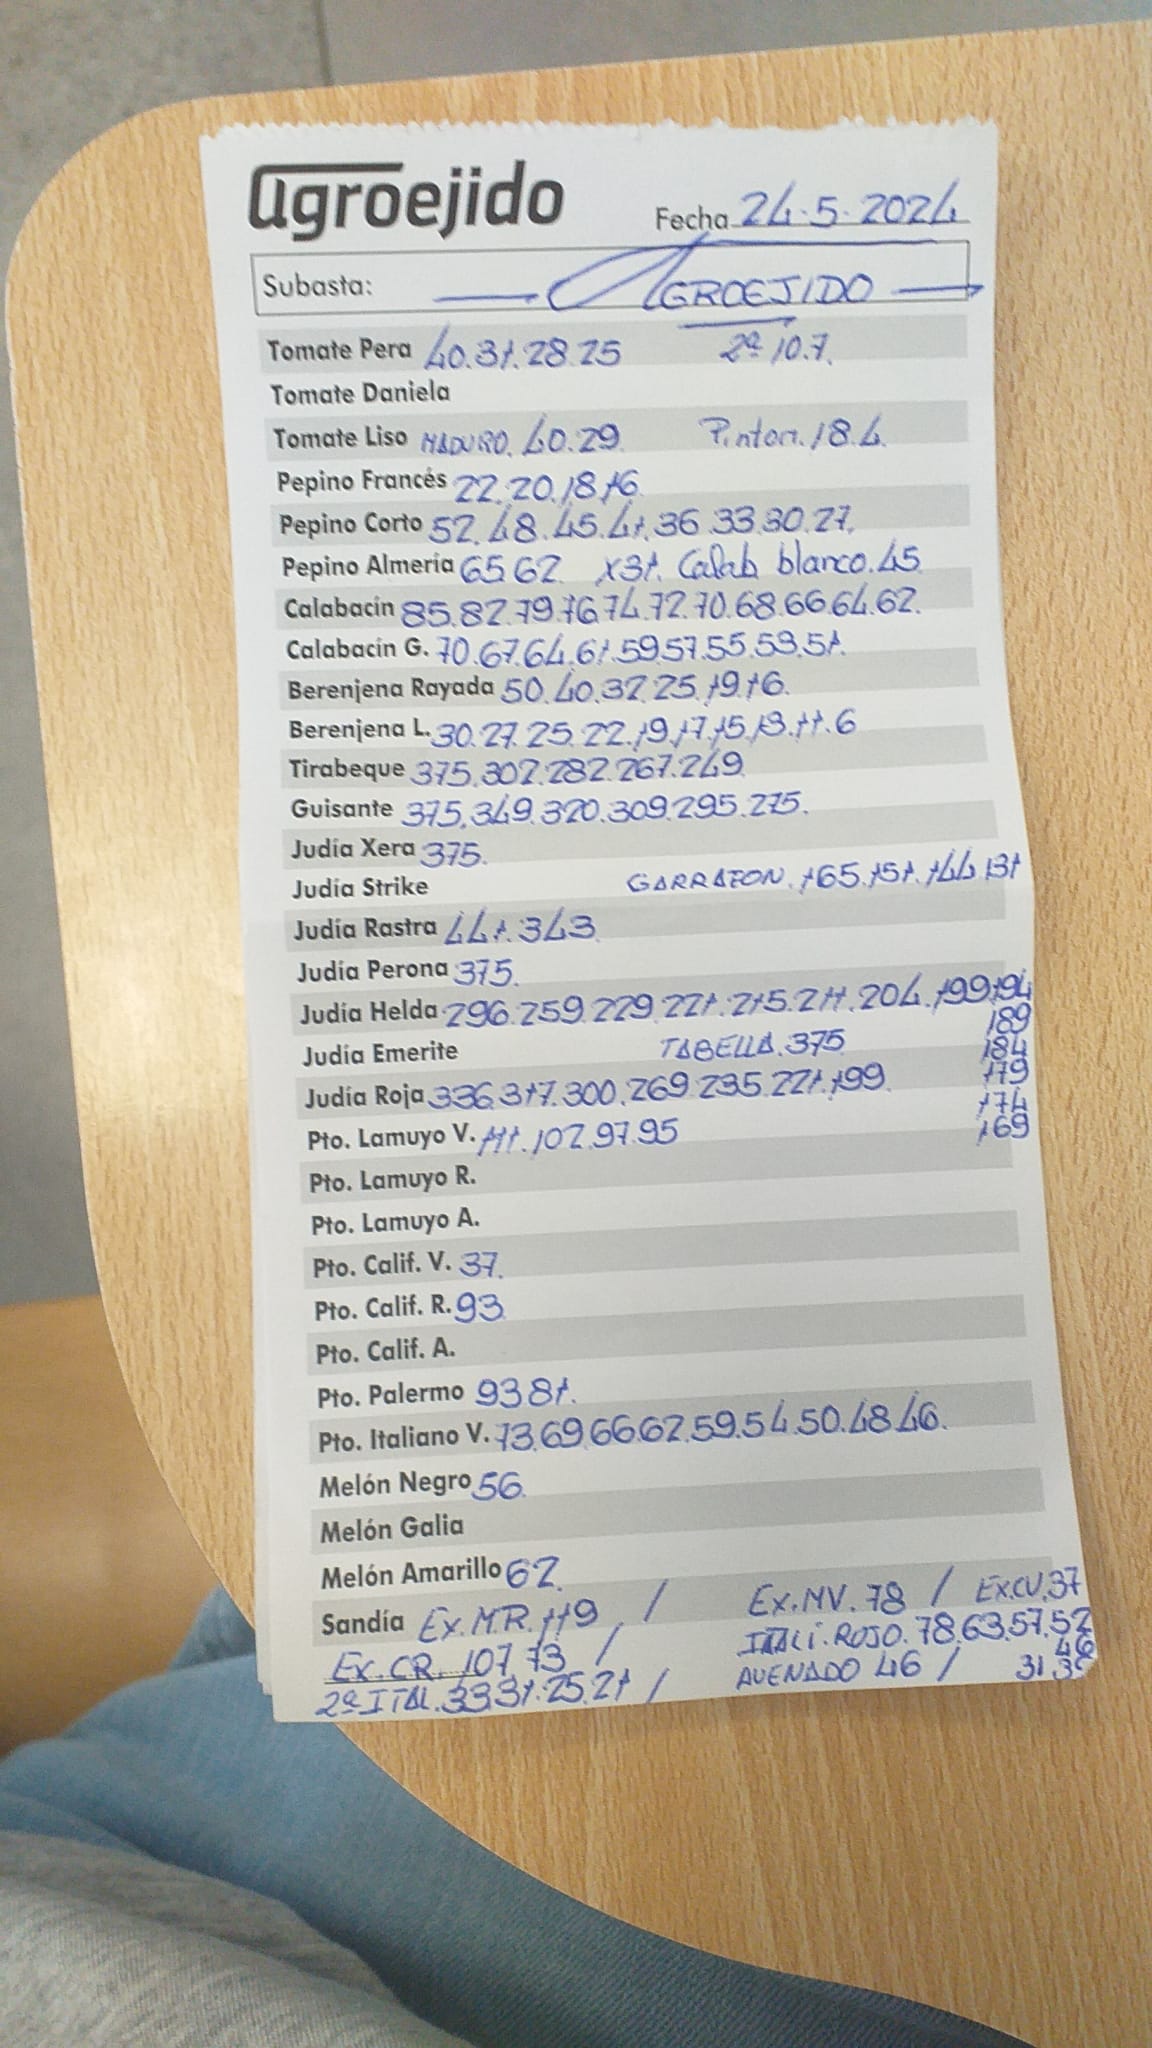 agroejido
Fecha 24.5.2024
Subasta: AGROEJIDO
Tomate Pera 40.31.28.25 2ª 10.7.
Tomate Daniela
Tomate Liso MADURO. 40.29. Pinton. 18.4.
Pepino Francés 22.20.18.16.
Pepino Corto 52.48.45.41.36.33.30.27.
Pepino Almería 65.62. x31. Calab blanco. 45.
Calabacín 85.82.79.76.74.72.70.68.66.64.62.
Calabacín G. 70.67.64.61.59.57.55.53.51.
Berenjena Rayada 50.40.32.25.19.16.
Berenjena L. 30.27.25.22.19.17.15.13.11.6
Tirabeque 375.302.282.267.249.
Guisante 375.349.320.309.295.275.
Judía Xera 375.
Judía Strike GARRAFON. 165.151.144.131
Judía Rastra 441.343.
Judía Perona 375.
Judía Helda 296.259.229.221.215.211.204.199.194
189
Judía Emerite TABELLA. 375. 184
179
Judía Roja 336.317.300.269.235.221.199.
174
Pto. Lamuyo V. 111.102.97.95 169
Pto. Lamuyo R.
Pto. Lamuyo A.
Pto. Calif. V. 37.
Pto. Calif. R. 93.
Pto. Calif. A.
Pto. Palermo 93.81.
Pto. Italiano V. 73.69.66.62.59.54.50.48.46.
Melón Negro 56.
Melón Galia
Melón Amarillo 62.
Sandía Ex.M.R. 119. / Ex.MV. 78 / Ex.CV.37
Ex.CR. 107.73 / ITALI. ROJO. 78.63.57.52
46
2ª ITAL. 33.31.25.21 / AVENADO 46 / 31